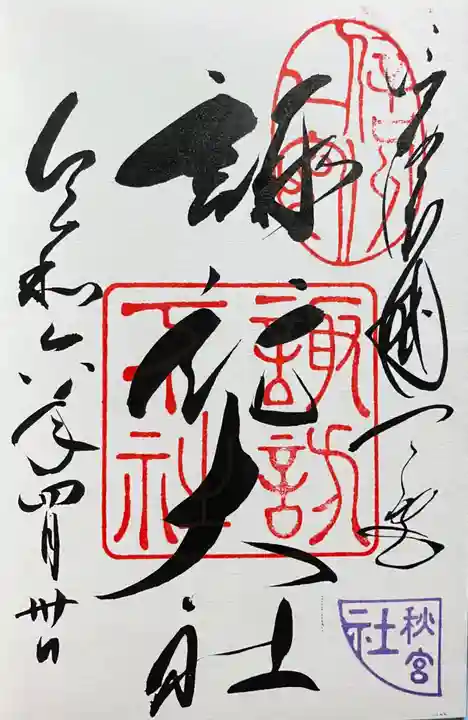 信濃國一之宮
諏訪大社
令和六年四月卅日
諏訪
下社
秋宮
社